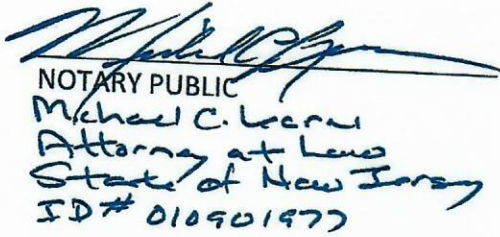 NOTARY PUBLIC
Michael C.
Attorney at Law
State of New Jersey
ID# 010901977